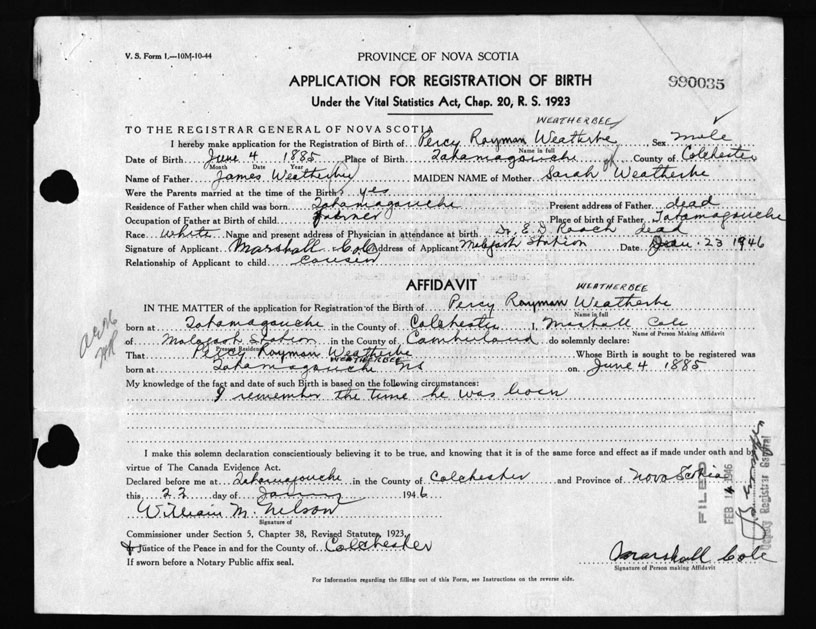 V. S. Form 1.—10M-10-44
PROVINCE OF NOVA SCOTIA
APPLICATION FOR REGISTRATION OF BIRTH
990035
Under the Vital Statistics Act, Chap. 20, R. S. 1923
WEATHERBEE
TO THE REGISTRAR GENERAL OF NOVA SCOTIA
I hereby make application for the Registration of Birth of Percy Rayman Weatherbe Sex male
Name in full
Date of Birth June 4 1885 Place of Birth Tatamagouche County of Colchester
Month Date Year
Name of Father James Weatherbe MAIDEN NAME of Mother Sarah Weatherbe
Were the Parents married at the time of the Birth? yes
Residence of Father when child was born Tatamagouche Present address of Father dead
Occupation of Father at Birth of child farmer Place of birth of Father Tatamagouche
Race White Name and present address of Physician in attendance at birth Dr. E. D. Roach dead
Signature of Applicant Marshall Cole Address of Applicant Malagash Station Date Jan. 23 1946
Relationship of Applicant to child cousin
AFFIDAVIT
WEATHERBEE
IN THE MATTER of the application for Registration of the Birth of Percy Rayman Weatherbe
Name in full
born at Tatamagouche in the County of Colchester I, Marshall Cole
Name of Person Making Affidavit
of Malagash Station in the County of Cumberland do solemnly declare:
Present Residence
That Percy Rayman Weatherbe Whose Birth is sought to be registered was
WEATHERBEE
born at Tatamagouche NS on June 4 1885
My knowledge of the fact and date of such Birth is based on the following circumstances:
I remember the time he was born
I make this solemn declaration conscientiously believing it to be true, and knowing that it is of the same force and effect as if made under oath and by
virtue of The Canada Evidence Act.
Declared before me at Tatamagouche in the County of Colchester and Province of Nova Scotia
this 23 day of January 1946
William M. Nelson
Signature of
Commissioner under Section 5, Chapter 38, Revised Statutes 1923
Justice of the Peace in and for the County of Colchester
If sworn before a Notary Public affix seal.
Marshall Cole
Signature of Person making Affidavit
For Information regarding the filling out of this Form, see Instructions on the reverse side.
FILED
FEB 14 1946
Deputy Registrar General